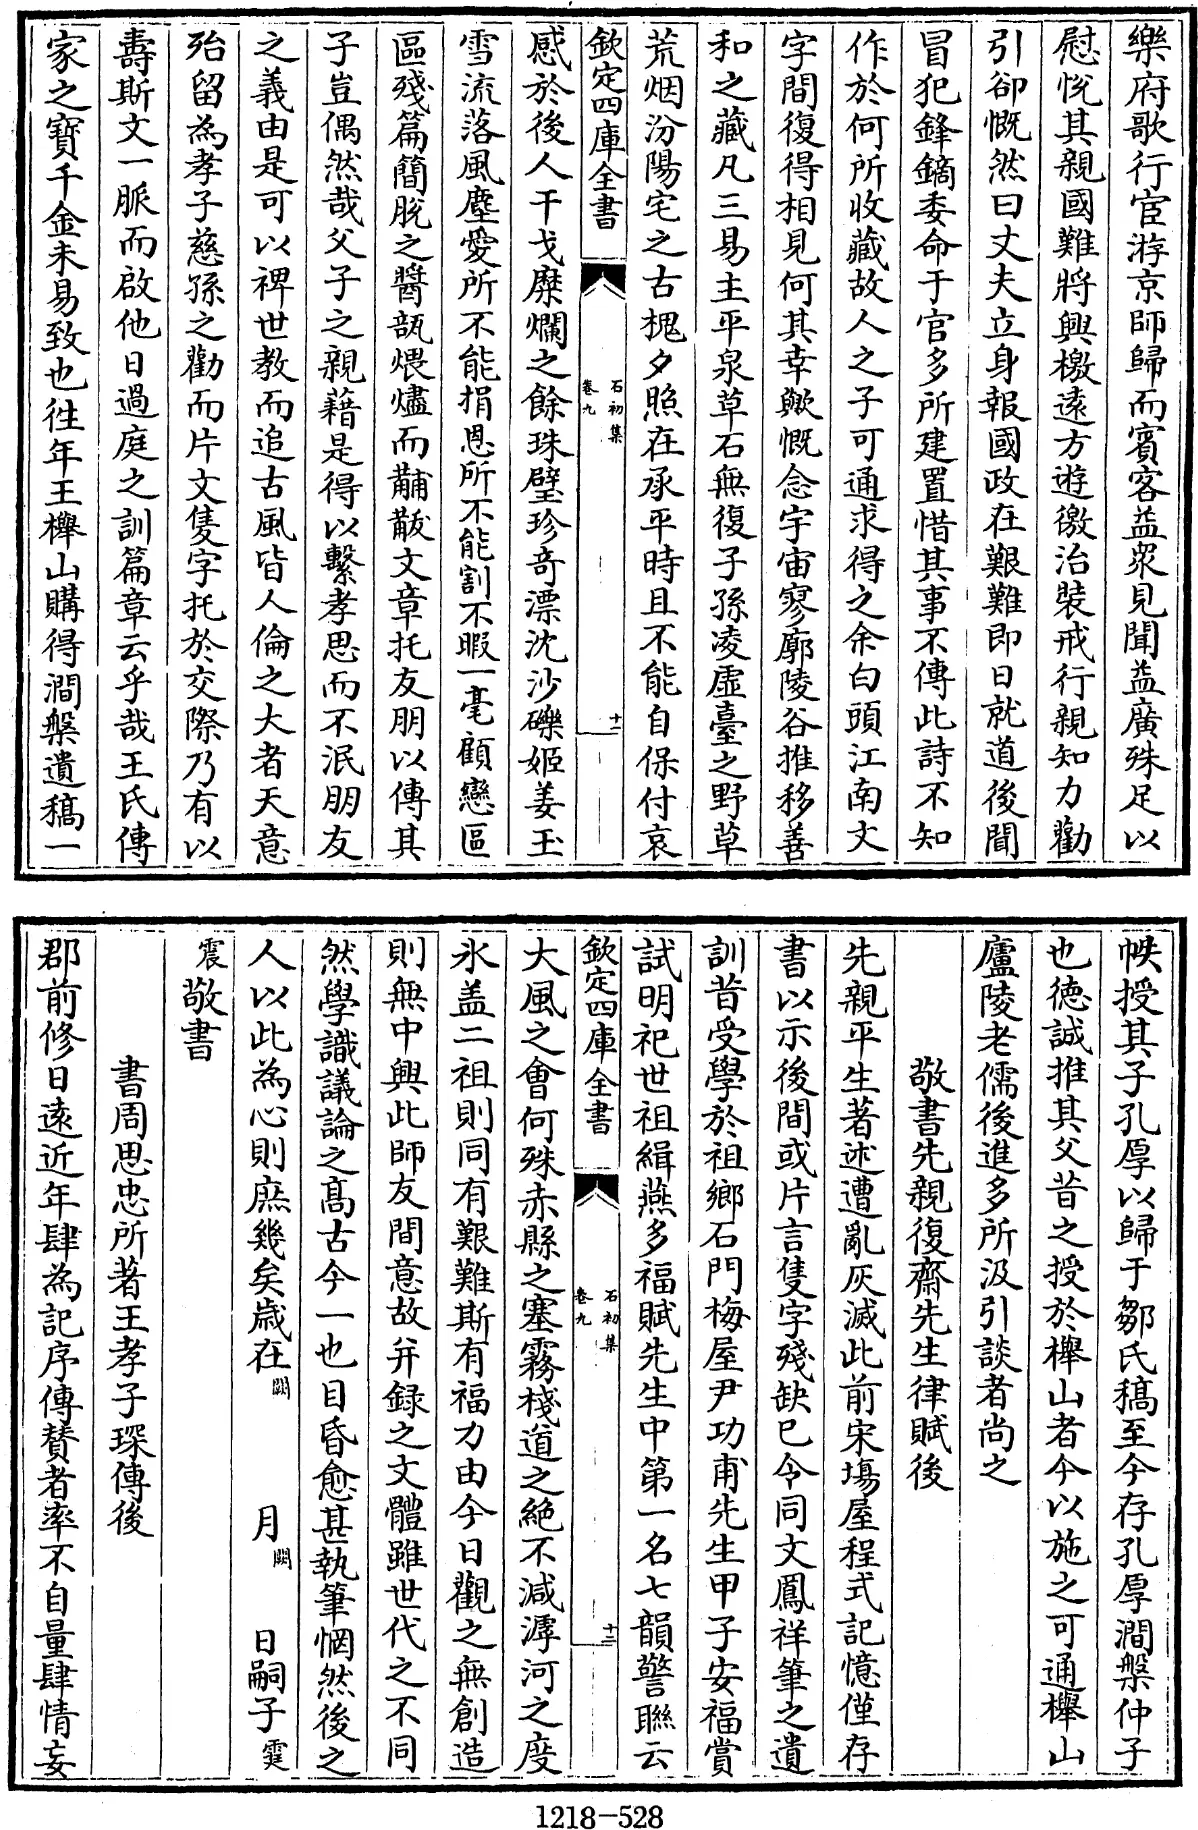 樂府歌行宦游京師歸而賓客益衆見聞益廣殊足以
慰恱其親國難將興檄遠方遊徼治裝戒行親知力勸
引卻慨然曰丈夫立身報國政在艱難即日就道後聞
冒犯鋒鏑委命于官多所建置惜其事不傳此詩不知
作於何所收藏故人之子可通求得之余白頭江南文
字間復得相見何其幸歟慨念宇宙寥廓陵谷推移善
和之藏凡三易主平泉草石無復子孫凌虛臺之野草
荒烟汾陽宅之古槐夕照在承平時且不能自保付哀
欽定四庫全書
石初集
卷九
十二
感於後人干戈糜爛之餘珠璧珍竒漂沈沙礫姬姜玉
雪流落風塵愛所不能捐恩所不能割不暇一毫顧戀區
區殘篇簡脫之醬瓿煨燼而黼黻文章托友朋以傳其
子豈偶然哉父子之親藉是得以繫孝思而不泯朋友
之義由是可以禆世教而追古風皆人倫之大者天意
殆留為孝子慈孫之勸而片文隻字托於交際乃有以
壽斯文一脈而啟他日過庭之訓篇章云乎哉王氏傳
家之寶千金未易致也徃年王櫸山購得澗槃遺稿一
帙授其子孔厚以歸于鄒氏稿至今存孔厚澗槃仲子
也徳誠推其父昔之授於櫸山者今以施之可通櫸山
廬陵老儒後進多所汲引談者尚之
敬書先親復齋先生律賦後
先親平生著述遭亂灰滅此前宋塲屋程式記憶僅存
書以示後間或片言隻字殘缺已令同文鳳祥筆之遺
訓昔受學於祖鄉石門梅屋尹功甫先生甲子安福賞
試明祀世祖緝燕多福賦先生中第一名七韻警聯云
欽定四庫全書
石初集
卷九
十三
大風之會何殊赤縣之塞霧棧道之絶不減滹河之度
氷盖二祖則同有艱難斯有福力由今日觀之無創造
則無中興此師友間意故并録之文體雖世代之不同
然學識議論之髙古今一也目昏愈甚執筆惘然後之
人以此為心則庶幾矣嵗在闕 月闕 日嗣子霆
震敬書
書周思忠所著王孝子琛傳後
郡前修日遠近年肆為記序傳賛者率不自量肆情妄
1218-528